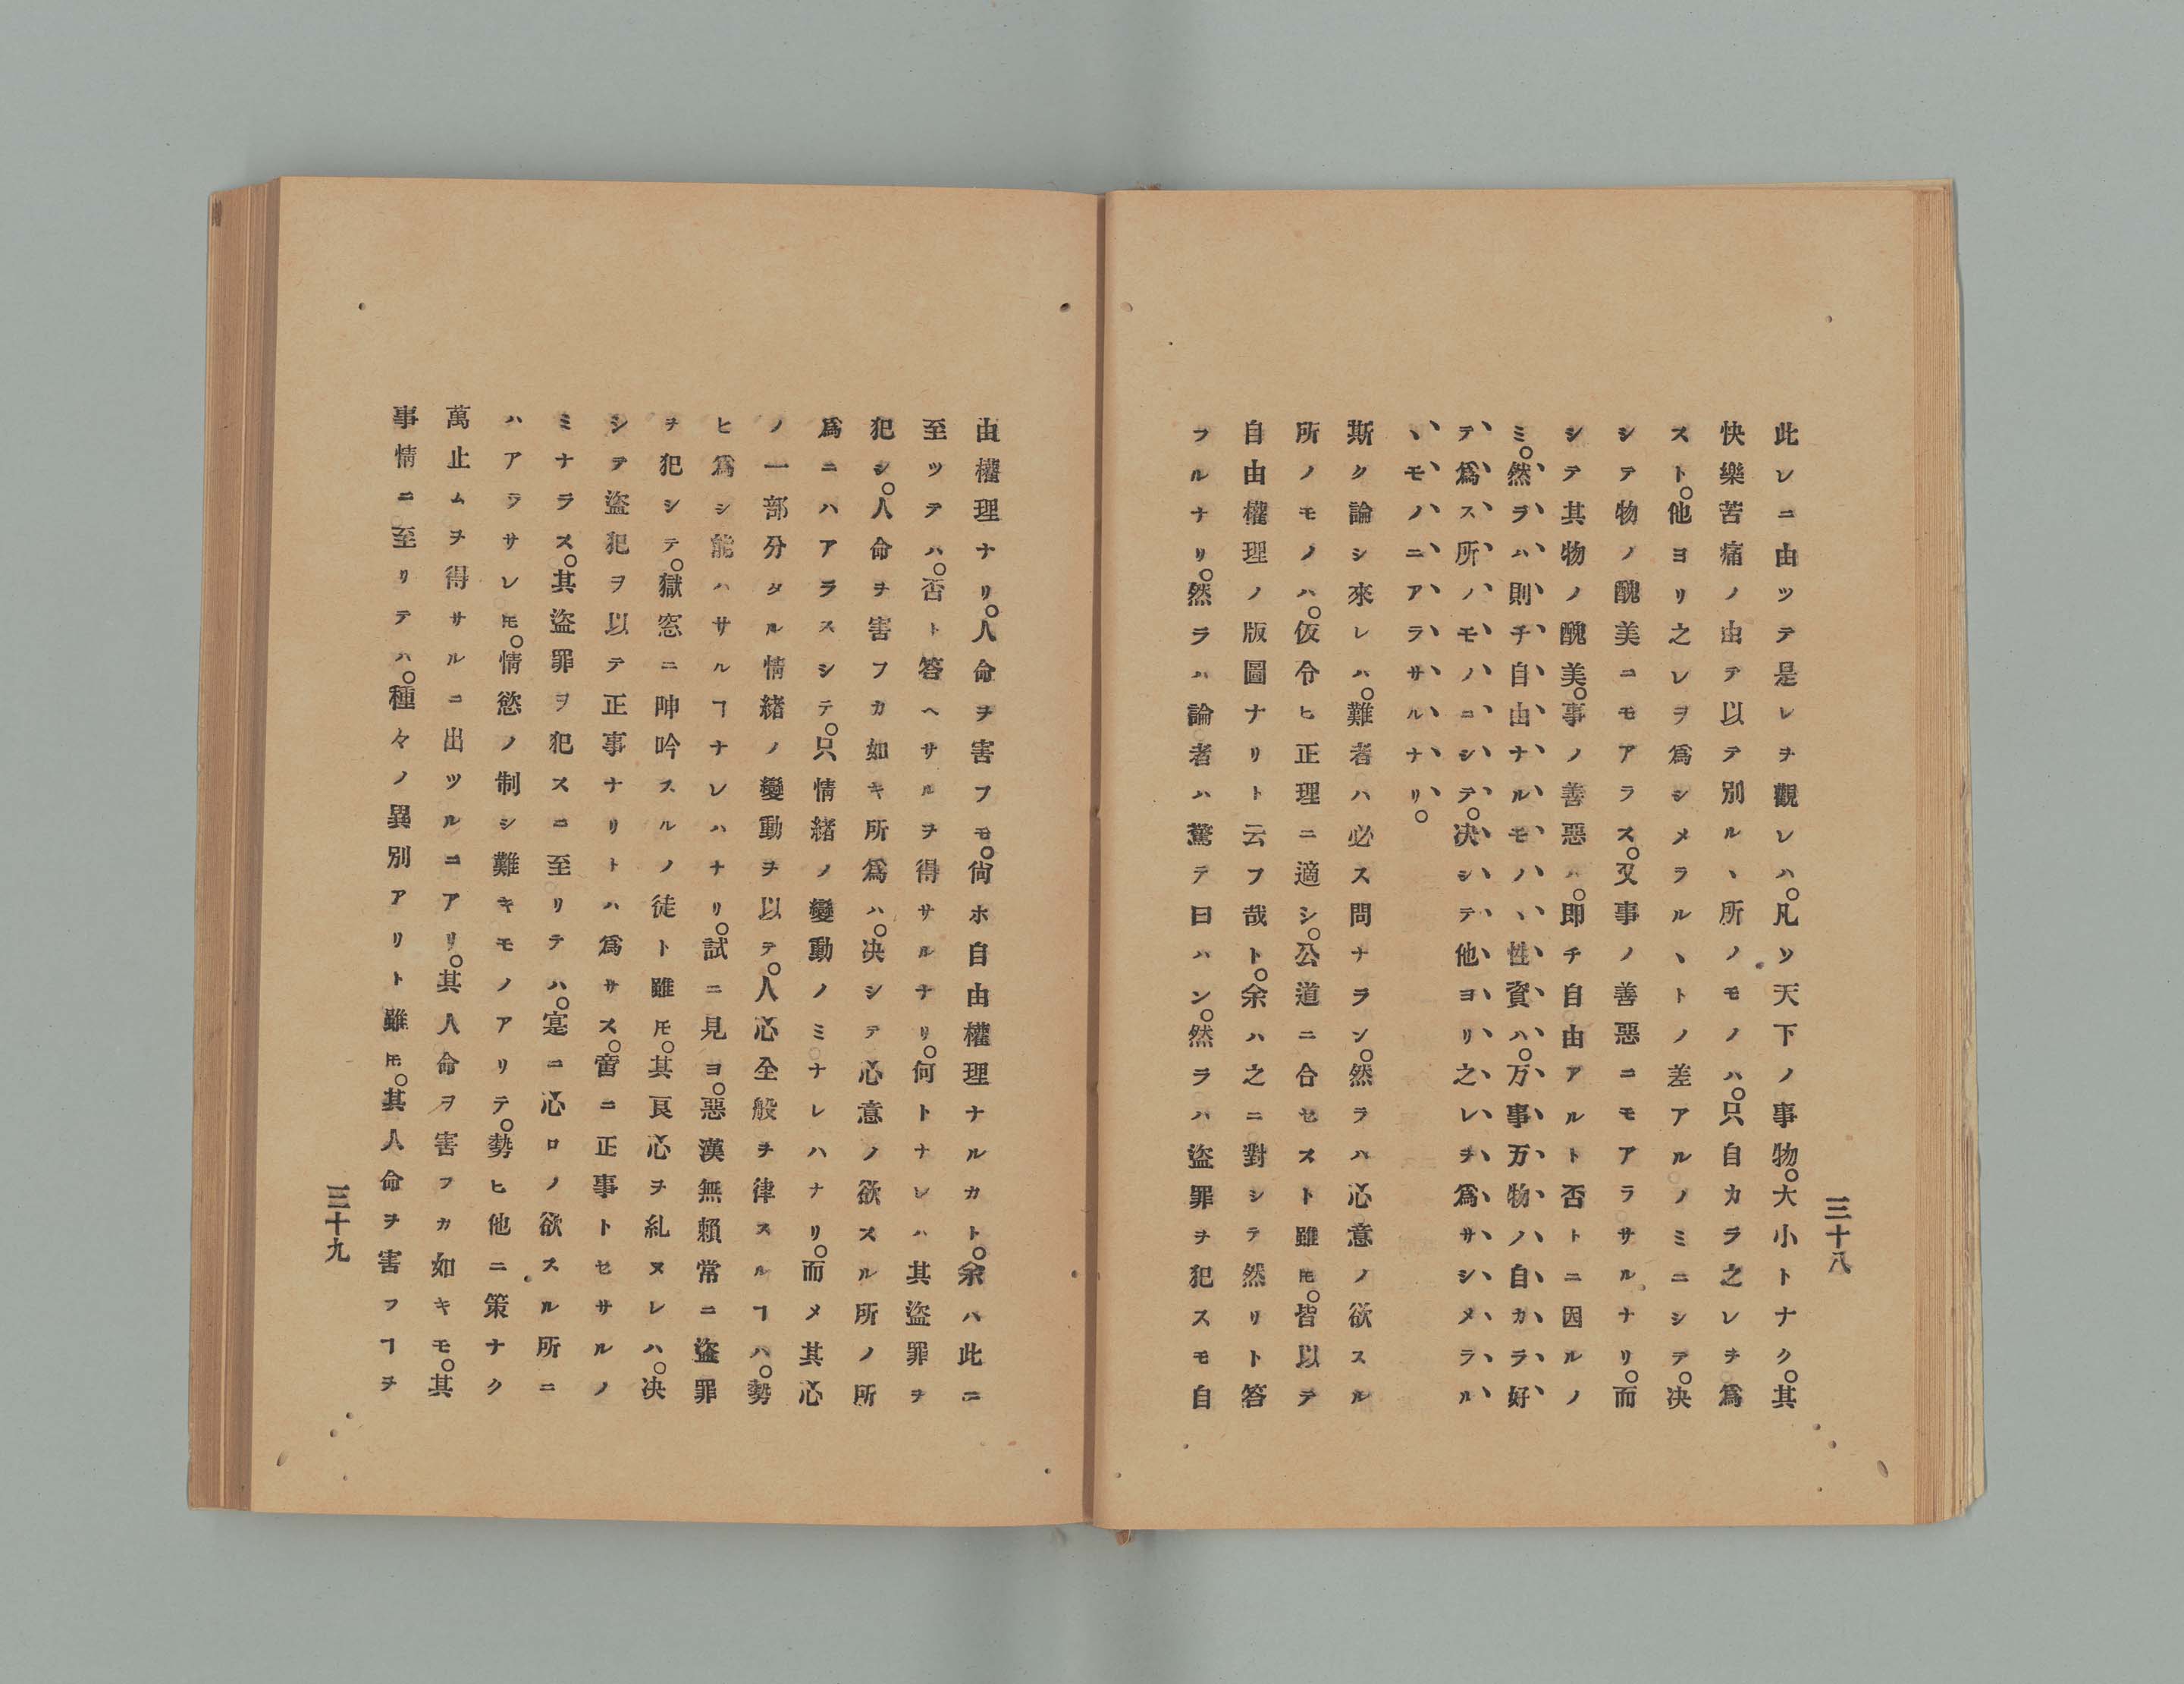 此レニ由ツテ是レヲ觀レハ。凡ソ天下ノ事物。大小トナク。其
快樂苦痛ノ由テ以テ別ルヽ所ノモノハ。只自カラ之レヲ爲
スト。他ヨリ之レヲ爲シメラルヽトノ差アルノミニシテ。决
シテ物ノ醜美ニモアラス。又事ノ善惡ニモアラサルナリ。而
シテ其物ノ醜美。事ノ善惡ハ。即チ自由アルト否トニ因ルノ
ミ。然ラハ則チ自由ナルモノヽ性資ハ。万事万物ノ自カラ好
テ爲ス所ノモノニシテ。决シテ他ヨリ之レヲ爲サシメラル
ヽモノニアラサルナリ。
斯ク論シ來レハ。難者ハ必ス問ナラン。然ラハ心意ノ欲スル
所ノモノハ。仮令ヒ正理ニ適シ。公道ニ合セスト雖𪜈。皆以テ
自由權理ノ版圖ナリト云フ哉ト。余ハ之ニ對シテ然リト答
フルナリ。然ラハ論者ハ驚テ曰ハン。然ラハ盜罪ヲ犯スモ自
三十八
由權理ナリ。人命ヲ害フモ。尙ホ自由權理ナルカト。余ハ此ニ
至ツテハ。否ト答ヘサルヲ得サルナリ。何トナレハ其盜罪ヲ
犯シ。人命ヲ害フカ如キ所爲ハ。决シテ心意ノ欲スル所ノ所
爲ニハアラスシテ。只情緖ノ變動ノミナレハナリ。而メ其心
ノ一部分タル情緖ノ變動ヲ以テ。人心全般ヲ律スルヿハ。勢
ヒ爲シ能ハサルヿナレハナリ。試ニ見ヨ。惡漢無賴常ニ盜罪
ヲ犯シテ。獄窓ニ呻吟スルノ徒ト雖𪜈。其良心ヲ糺ヌレハ。决
シテ盜犯ヲ以テ正事ナリトハ爲サス。啻ニ正事トセサルノ
ミナラス。其盜罪ヲ犯スニ至リテハ。寔ニ心ロノ欲スル所ニ
ハアラサレ𪜈。情慾ノ制シ難キモノアリテ。勢ヒ他ニ策ナク
萬止ムヲ得サルニ出ツルニアリ。其人命ヲ害フカ如キモ。其
事情ニ至リテハ。種々ノ異別アリト雖𪜈。其人命ヲ害フヿヲ
三十九